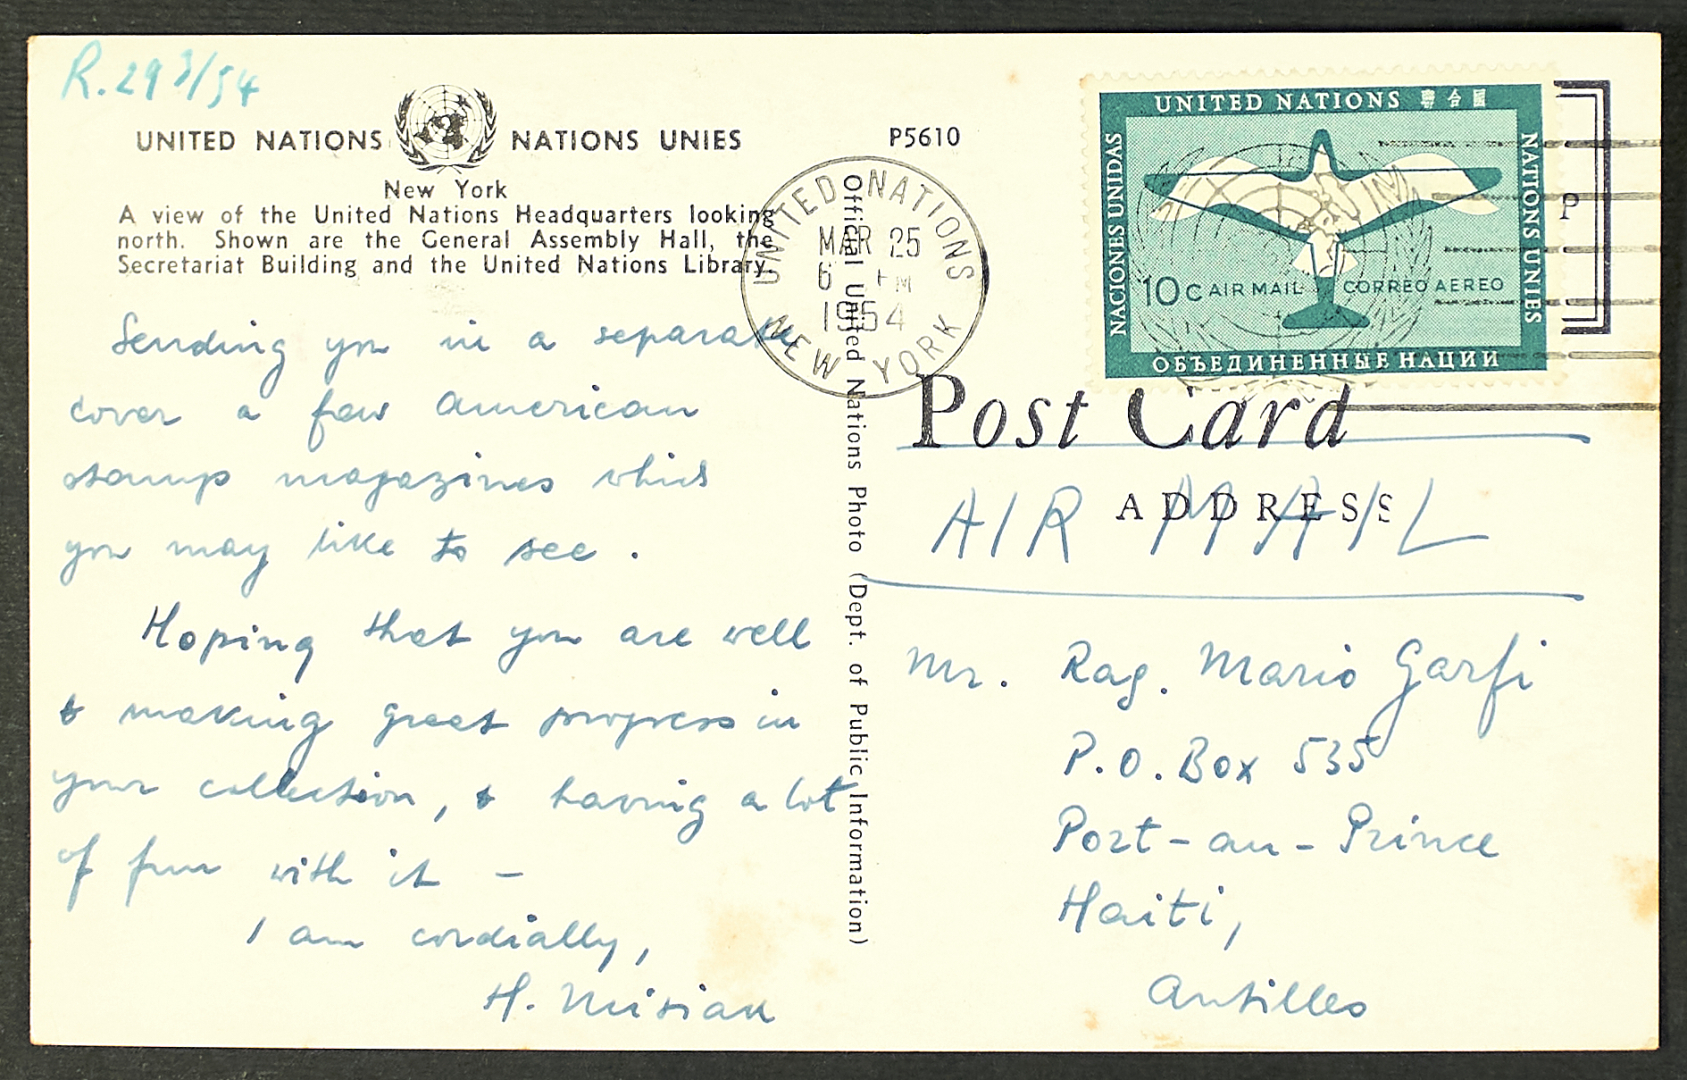 R. 29 3/54
UNITED NATIONS NATIONS UNIES
New York
A view of the United Nations Headquarters looking
north. Shown are the General Assembly Hall, the
Secretariat Building and the United Nations Library.
Sending you in a separate
cover a few American
stamp magazines which
you may like to see.
Hoping that you are well
& making great progress in
your collection, & having a lot
of fun with it –
I am cordially,
H.
P5610
Official United Nations Photo (Dept. of Public Information)
UNITED NATIONS
MAR 25
6 PM
1954
NEW YORK
UNITED NATIONS 聯合國
NACIONES UNIDAS
NATIONS UNIES
10c AIR MAIL CORREO AEREO
ОБЪЕДИНЕННЫЕ НАЦИИ
P
Post Card
ADDRESS
AIR MAIL
Mr. Rag. Mario Garfi
P.O. Box 535
Port-au-Prince
Haiti,
Antilles